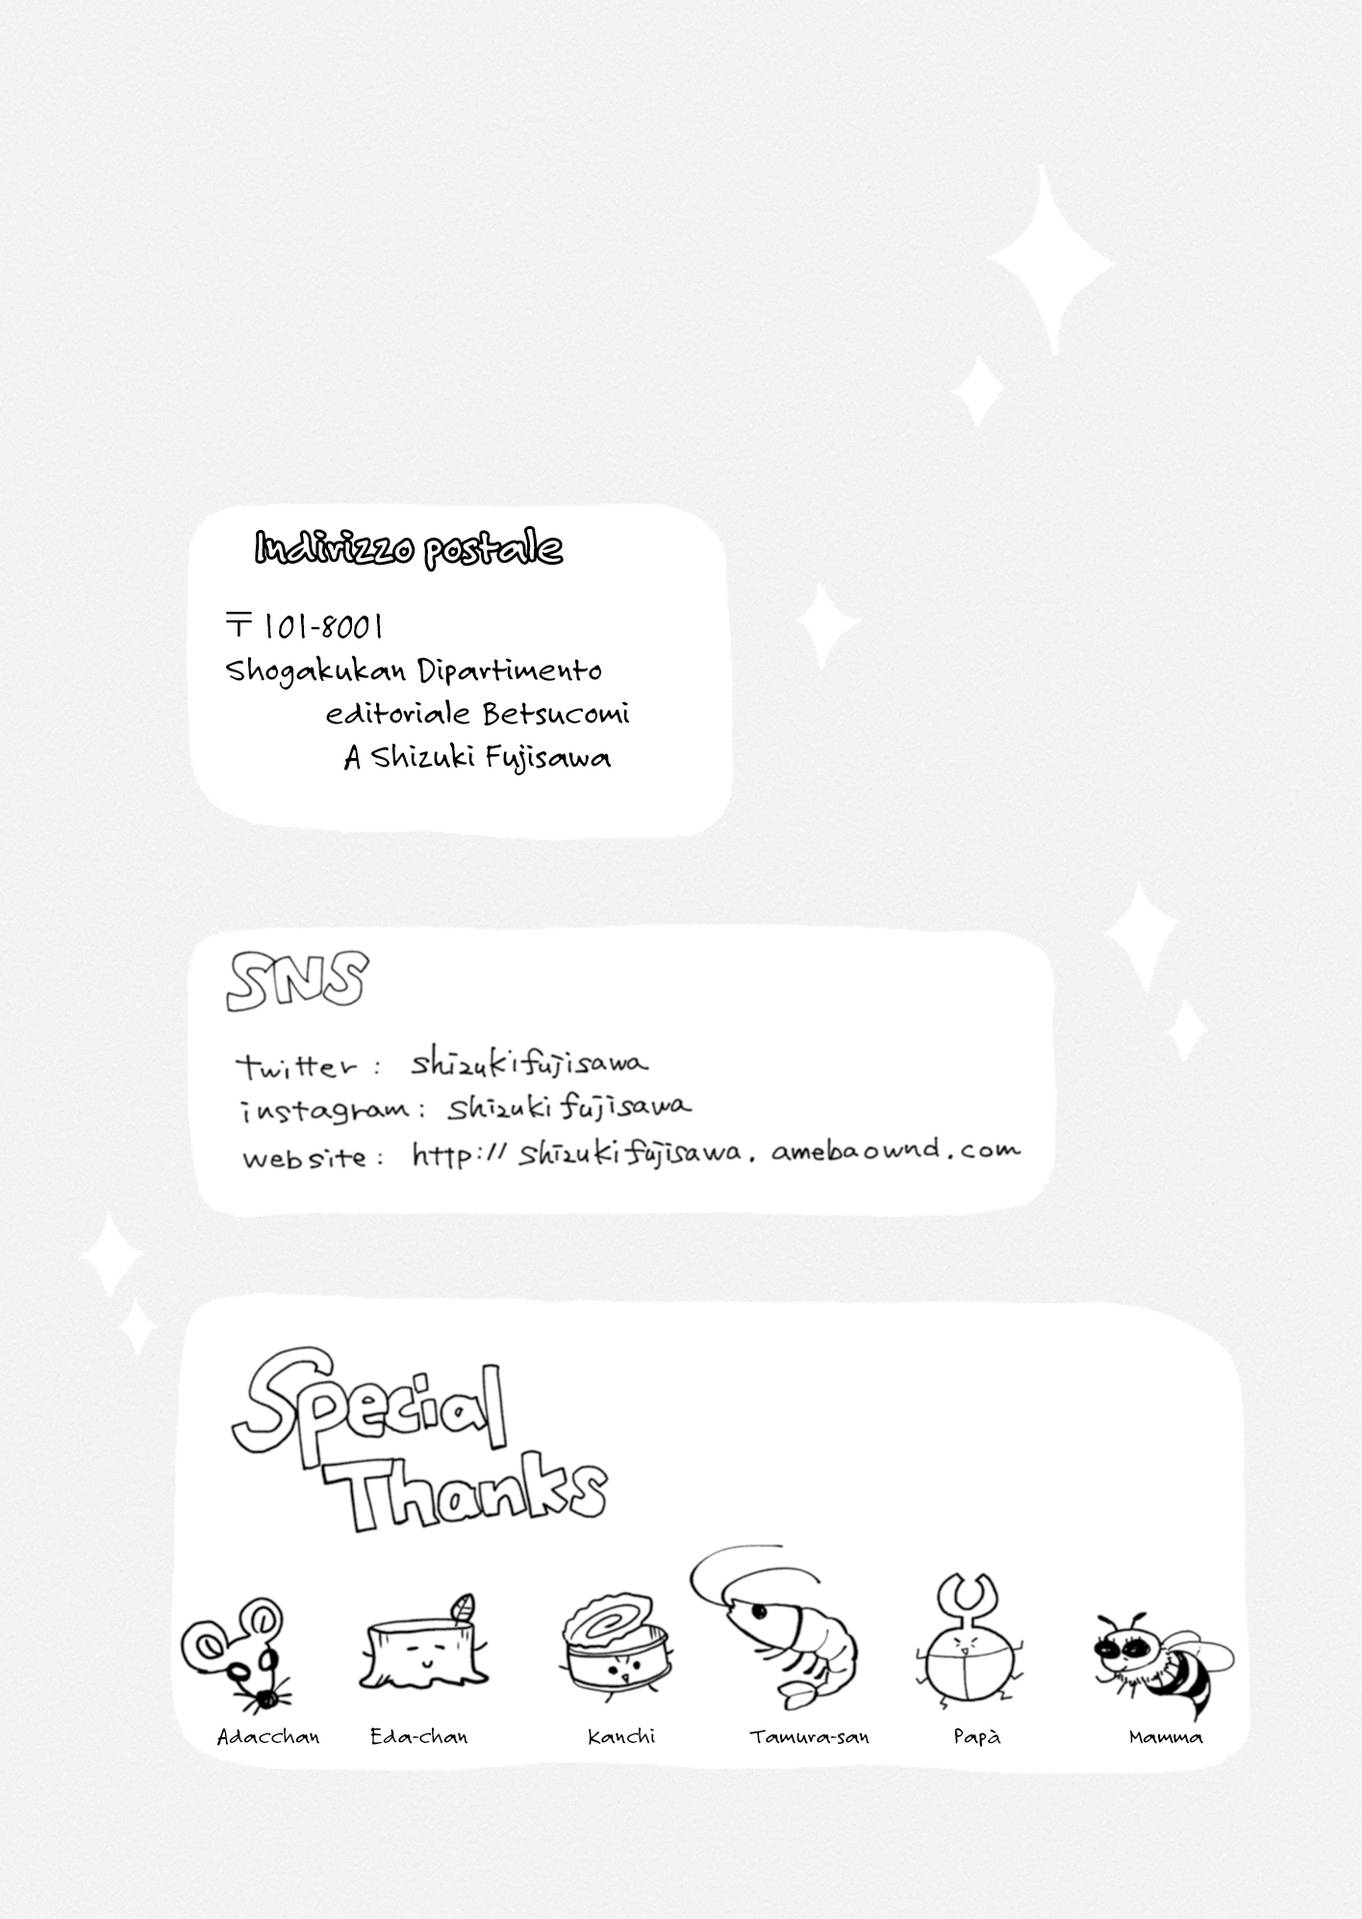 Indirizzo postale
〒101-8001
Shogakukan Dipartimento
editoriale Betsucomi
A Shizuki Fujisawa
SNS
twitter : shizukifujisawa
instagram : shizukifujisawa
website : http://shizukifujisawa.amebaownd.com
Special
Thanks
Adacchan Eda-chan Kanchi Tamura-san Papà Mamma